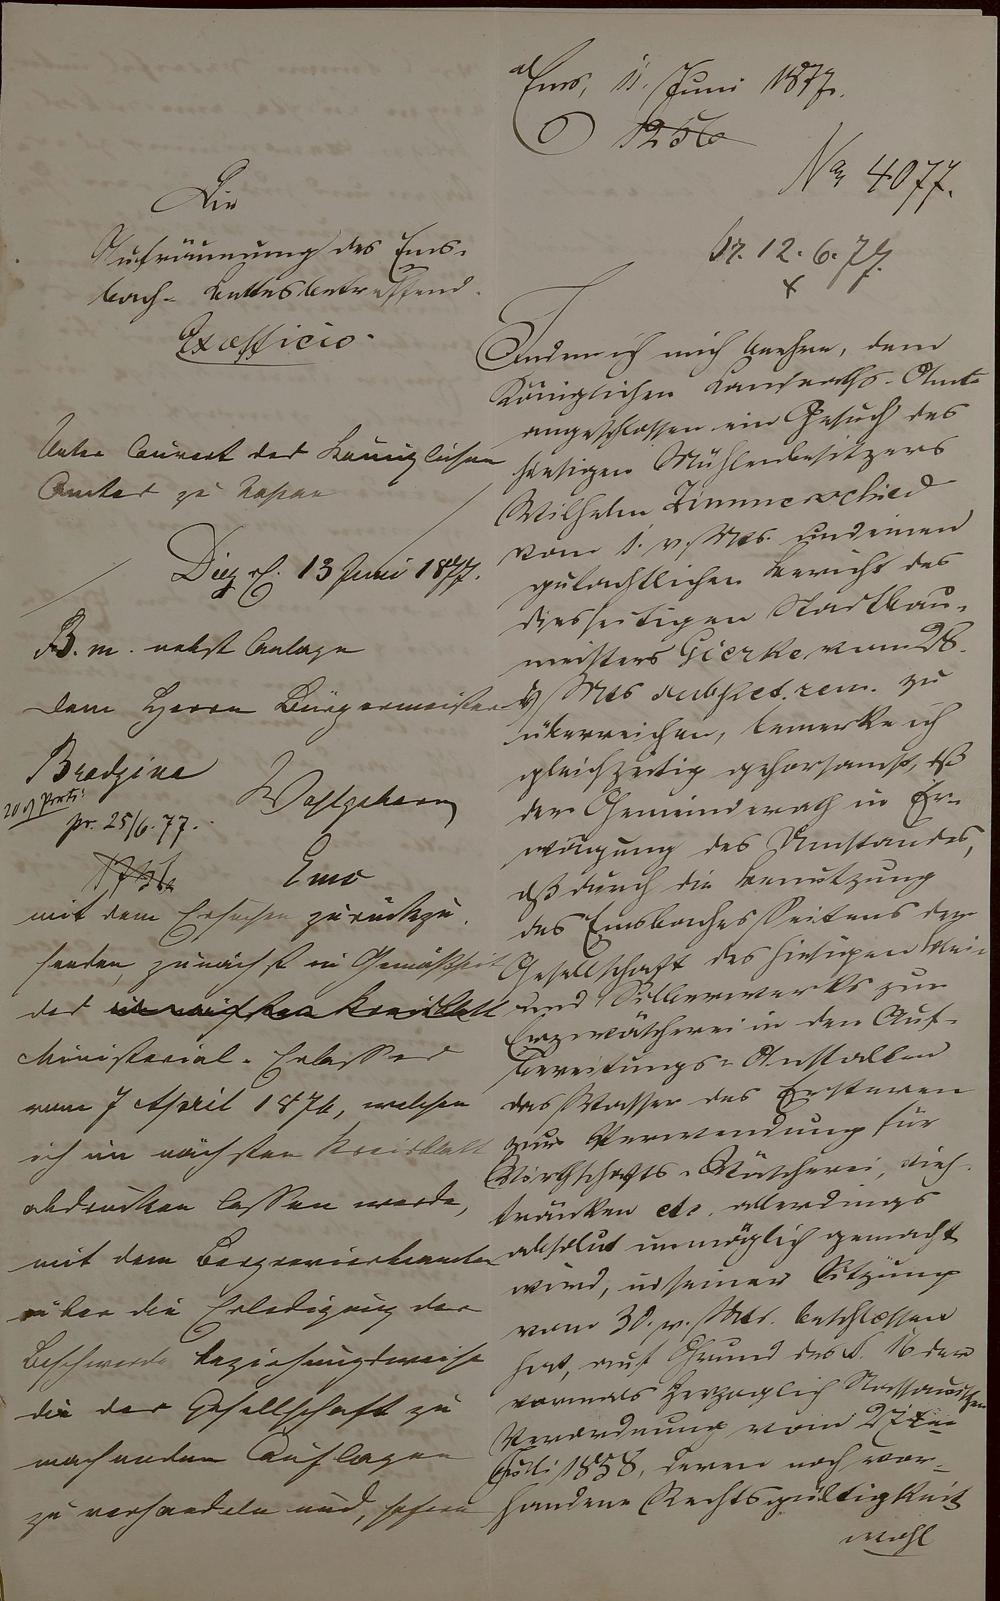 Ems, 11. Juni 1877.
1256
No 4077.
12. 6. 77.
Die
Aufräumung des Ems-
bach-Bettes betreffend.
Ex officio.
Unter Couvert des Königlichen
Amtes zu Nassau
Diez, d. 13 Juni 1877.
B. m. nebst Anlage
dem Herrn Bürgermeister
pr. 25/6. 77.
Ems
mit dem Ersuchen zurückzu-
senden, zunächst in Gemäßheit
des im nächsten Kreisblatt
Ministerial-Erlasses
vom 7 April 1876, welchen
ich im nächsten Kreisblatt
abdrucken lassen werde,
mit dem Bergrevierbeamten
über die Erledigung der
Beschwerde beziehungsweise
die der Gesellschaft zu
machenden Auflagen
zu verhandeln und, sofern
Indem ich mich beehre, dem
Königlichen Landraths-Amte
angeschlossen ein Gesuch des
hiesigen Mühlenbesitzers
Wilhelm Zimmerschied
vom 1. v. Mts. und einen
gutachtlichen Bericht des
diesseitigen Stadtbau-
meisters Gierke vom 28.
v. Mts sub pet. rem. zu
überreichen, bemerke ich
gleichzeitig gehorsamst, daß
der Gemeinderath in Er-
wägung des Umstandes,
daß durch die Benutzung
des Emsbaches Seitens der
Gesellschaft des hiesigen Blei-
und Silberwerks zur
Erzwäscherei in den Auf-
bereitungs-Anstalten
das Wasser des Ersteren
zur Verwendung für
Wirthschafts-Wäscherei, Vieh-
tränken etc. allerdings
absolut unmöglich gemacht
wird, in seiner Sitzung
vom 30. v. Mts. beschlossen
hat, auf Grund des §. 16 der
vormals Herzoglich Nassauischen
Verordnung vom 27ten
Juli 1858, deren noch vor-
handene Rechtsgültigkeit
wohl